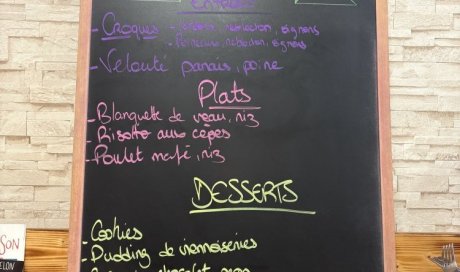 - Croques - Jambon, reblochon, oignons
- Poireaux, reblochon, oignons
- Velouté panais, poire
Plats
- Blanquette de veau, riz
- Risotto aux cèpes
- Poulet mafé, riz
DESSERTS
- Cookies
- Pudding de viennoiseries
chocolat
SON
ELON